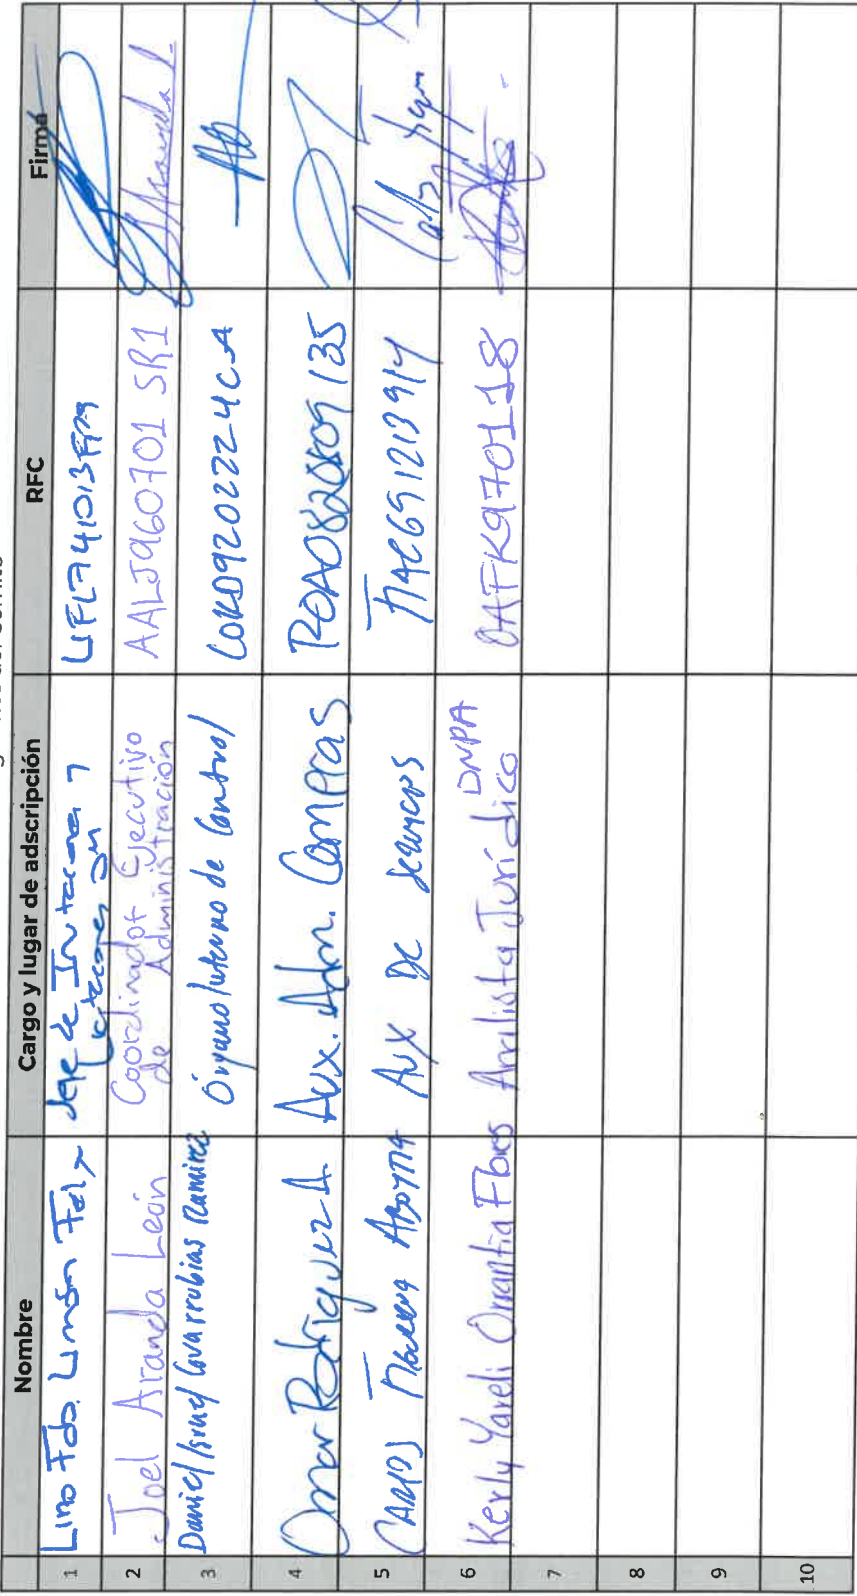 Nombre Cargo y lugar de adscripción RFC Firma
1 Lino Fdo. Limón Felix Jefe de
2 Joel Aranda León Coordinador Ejecutivo de Administración AALJ960701 SR1
3 Daniel Israel Covarrubias Ramirez Órgano Interno de Control CORD920222 4CA
4 Omar Rodriguez A Aux. Adm. Compras ROAO820809135
5 Carlos Aux de Servicios
6 Kerly Yareli Omantia Flores Analista Jurídico DNPA OAFK970118
7
8
9
10